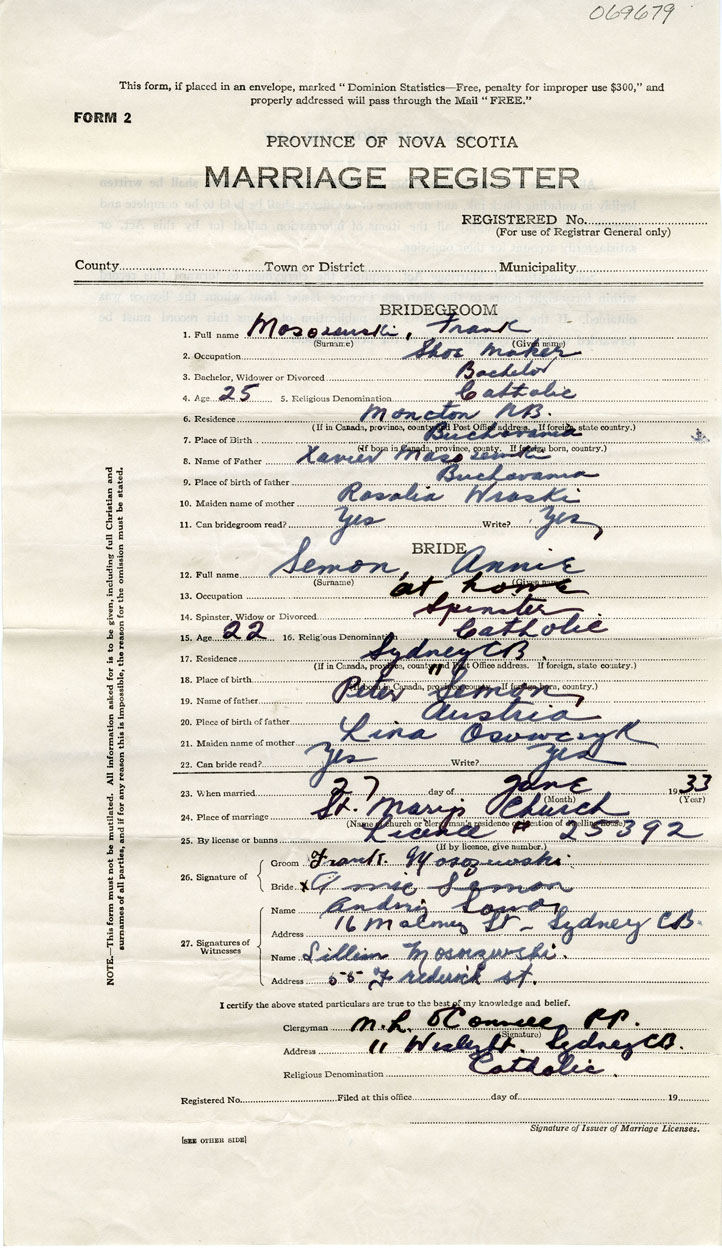 069679
This form, if placed in an envelope, marked "Dominion Statistics—Free, penalty for improper use $300," and
properly addressed will pass through the Mail "FREE."
FORM 2
PROVINCE OF NOVA SCOTIA
MARRIAGE REGISTER
REGISTERED No.
(For use of Registrar General only)
County Town or District Municipality
BRIDEGROOM
1. Full name Mosozewski, Frank
(Surname) (Given name)
2. Occupation Shoe Maker
3. Bachelor, Widower or Divorced Bachelor
4. Age 25 5. Religious Denomination Catholic
6. Residence Moncton N.B.
(If in Canada, province, county and Post Office address. If foreign, state country.)
7. Place of Birth Buchovania
(If born in Canada, province, county. If foreign born, country.)
8. Name of Father Xavier Mosozewski
9. Place of birth of father Buchovania
10. Maiden name of mother Rosalia Wroski
11. Can bridegroom read? Yes Write? Yes
BRIDE
12. Full name Semon, Annie
(Surname) (Given name)
13. Occupation at home
14. Spinster, Widow or Divorced Spinster
15. Age 22 16. Religious Denomination Catholic
17. Residence Sydney CB.
(If in Canada, province, county and Post Office address. If foreign, state country.)
18. Place of birth "
(If born in Canada, province, county. If foreign born, country.)
19. Name of father Peter Semon
20. Place of birth of father Austria
21. Maiden name of mother Lina Osowczyk
22. Can bride read? Yes Write? Yes
23. When married 27 day of June 1933
(Month) (Year)
24. Place of marriage St. Mary's Church
(Name of church or clergyman's residence or location of dwelling house)
25. By license or banns Licence # 25392
(If by licence, give number.)
26. Signature of
Groom Frank Mosozewski
Bride x Annie Semon
27. Signatures of Witnesses
Name Andrij Sowa
Address 16 St - Sydney CB.
Name Lillian Mosozewski.
Address 55 Frederick st.
I certify the above stated particulars are true to the best of my knowledge and belief.
Clergyman M. L. O'Connell P.P.
(Signature)
Address 11 Wesley St. Sydney CB.
Religious Denomination Catholic.
Registered No. Filed at this office day of 19
Signature of Issuer of Marriage Licenses.
[SEE OTHER SIDE]
NOTE.—This form must not be mutilated. All information asked for is to be given, including full Christian and
surnames of all parties, and if for any reason this is impossible, the reason for the omission must be stated.